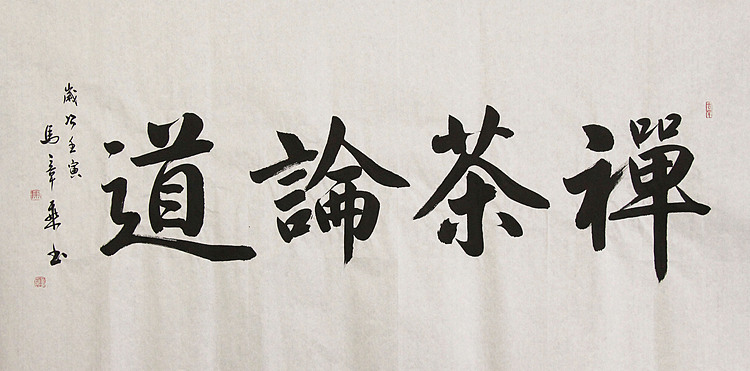 禪茶論道
歲次壬寅
馬章乘書